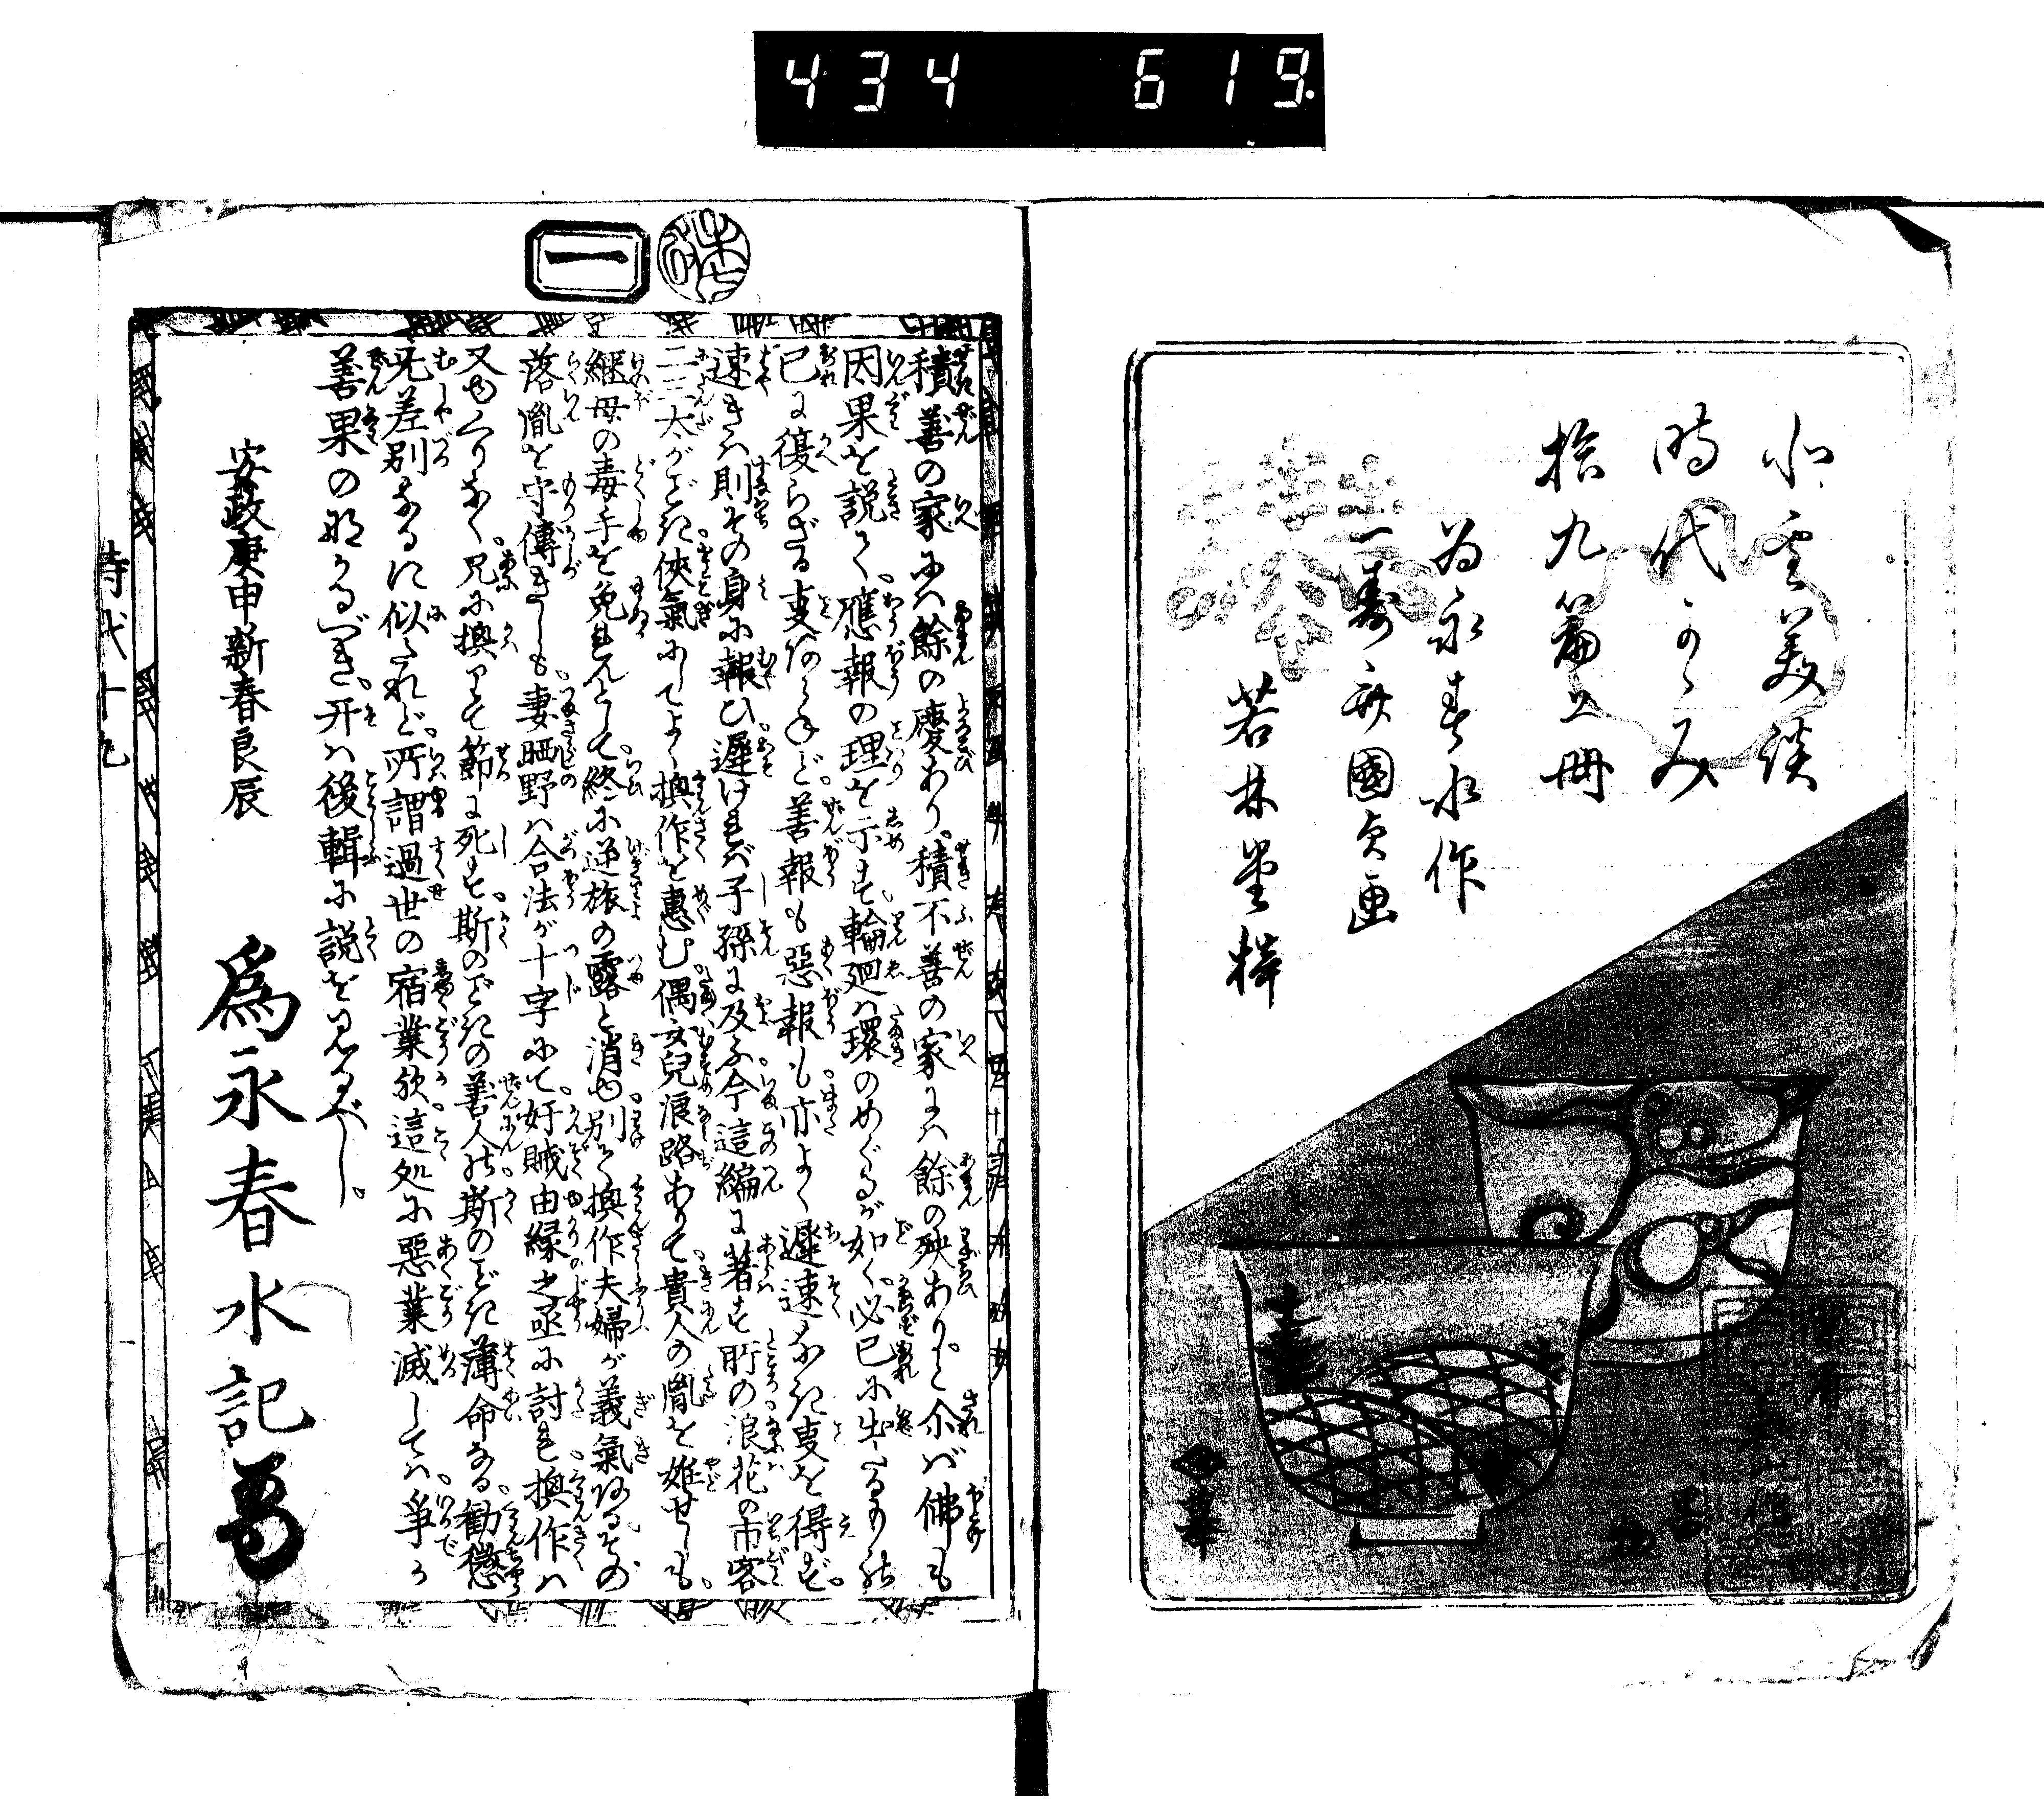 434 619
北雪美談
時代かゞみ
拾九篇上冊
為永春水作
一壽齋國貞画
若林堂梓
一
積善の家には餘の慶あり。積不善の家には餘の殃ありと。尓ば佛も
因果を説て。應報の理を示す。輪廻は環のめぐるが如く。必己に出たるものは
己に復らざる事なけれど。善報も惡報も。亦よく遲速なき事を得ず。
速きは則その身に報ひ。遲ければ子孫に及ふ。今這編に著す所の浪花の市客
二三太がごとき。俠氣にしてよく換作を惠む。偶女兒浪路ありて。貴人の胤を姙せしも。
継母の毒手を免れんとして。終に逆旅の露と消ゆ。別て換作夫婦が義氣なる。その
落胤を守傳きしも。妻晒野は合法が十字にて。奸賊由縁之丞に討れ。換作は
又ゆくりなく。兄に換りて節に死す。斯のごときの善人の。斯のごとき薄命なる。勸懲
无差別なるに似たれど。所謂過世の宿業欤。這処に惡業滅しては。爭か
善果の那かるべき。开は後輯に説を見るべし。
安政庚申新春良辰
爲永春水記
時代十九